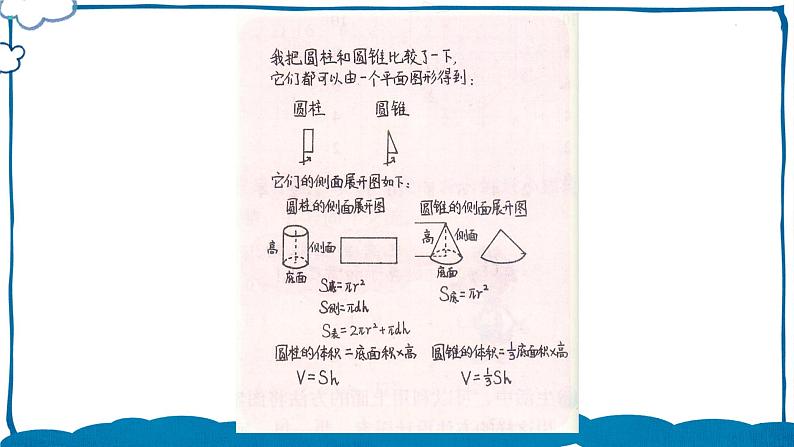 我把圆柱和圆锥比较了一下,
它们都可以由一个平面图形得到:
圆柱 圆锥
它们的侧面展开图如下:
圆柱的侧面展开图 圆锥的侧面展开图
高 侧面 高 侧面
底面 底面
S底=πr² S底=πr²
S侧=πdh
S表=2πr²+πdh
圆柱的体积=底面积×高 圆锥的体积=⅓底面积×高
V=Sh V=⅓Sh